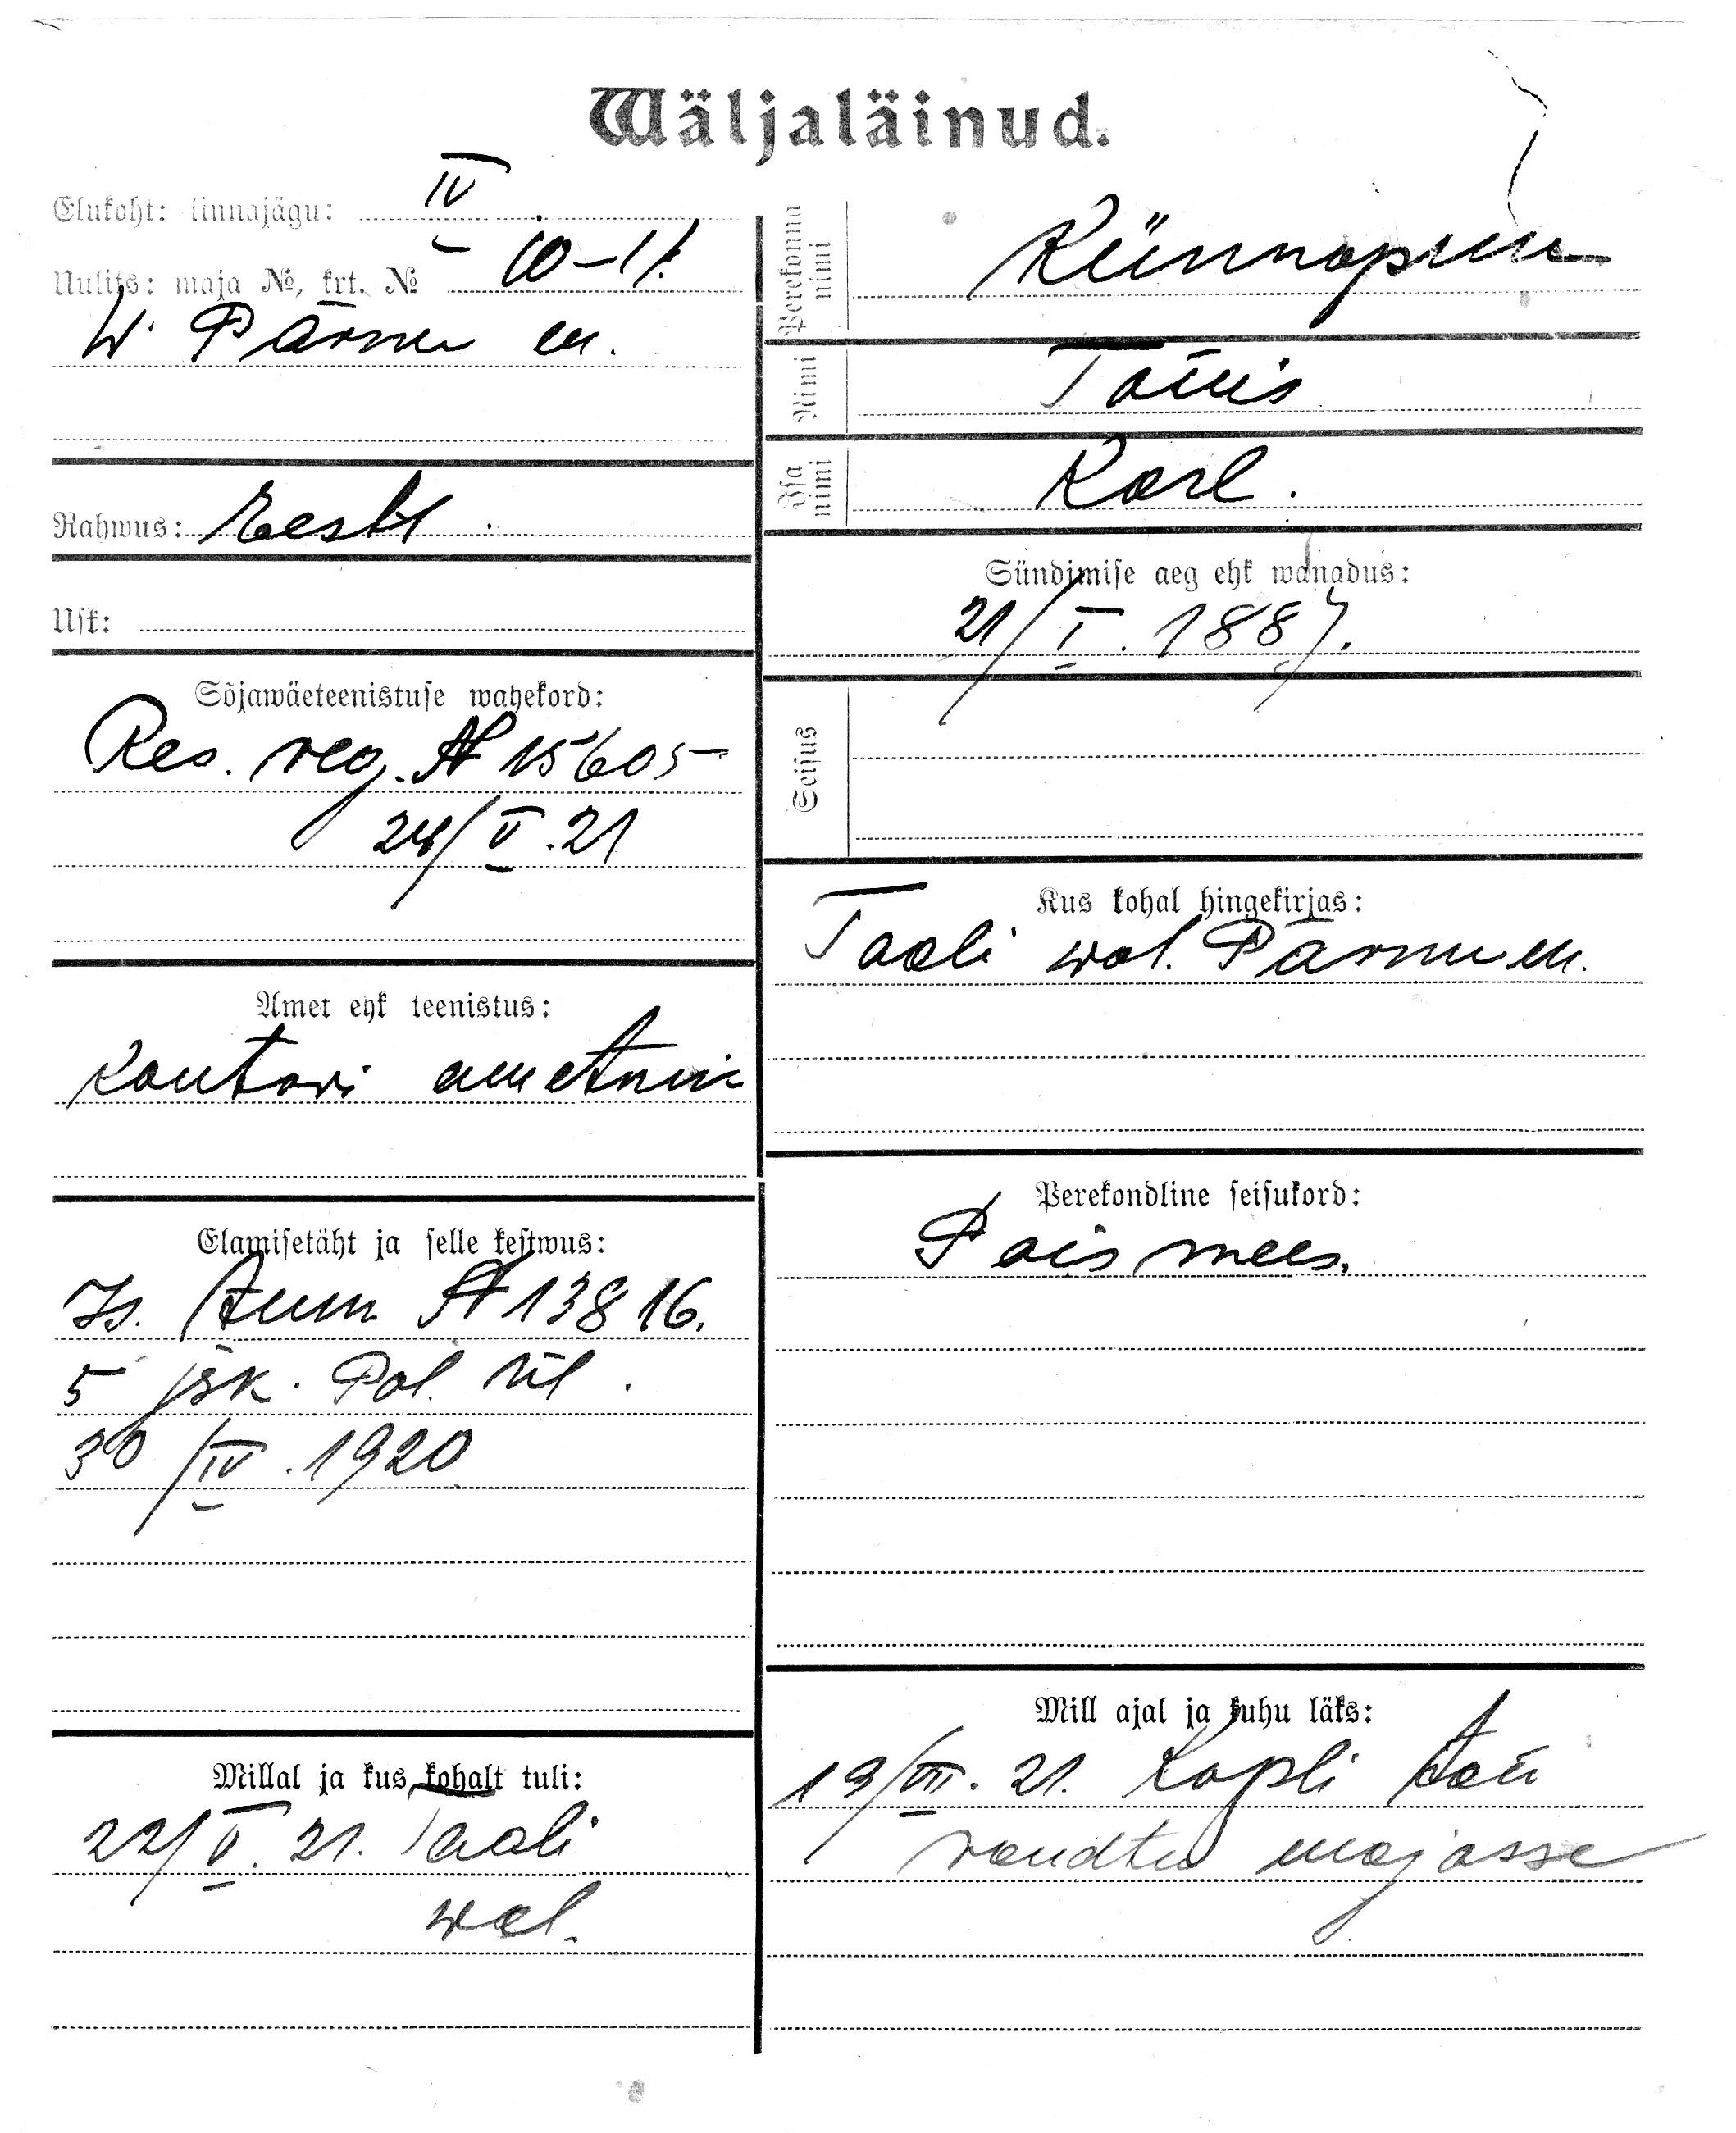 Wäljaläinud.
Elukoht: linnajägu: IV
Uulits: maja №, krt. № 10-11.
W. Pärnu m.
Rahwus: Eestl.
Usk:
Sõjawäeteenistuse wahekord:
Res. reg. № 15605
24/V.21
Amet ehk teenistus:
Kontori ametnik
Elamisetäht ja selle kestwus:
Is. tunn № 13816.
5 jsk. Pol. ül.
30/IV.1920
Millal ja kus kohalt tuli:
22/V.21. Taali
wal.
Perekonna nimi Künnapuu
Nimi Tõnis
Isa nimi Karl.
Sündimise aeg ehk wanadus:
21/I.1887.
Seisus
Kus kohal hingekirjas:
Taali wal. Pärnu m.
Perekondline seisukord:
Poismees.
Mill ajal ja kuhu läks:
19/VII.21. Kopli
raudtee majasse